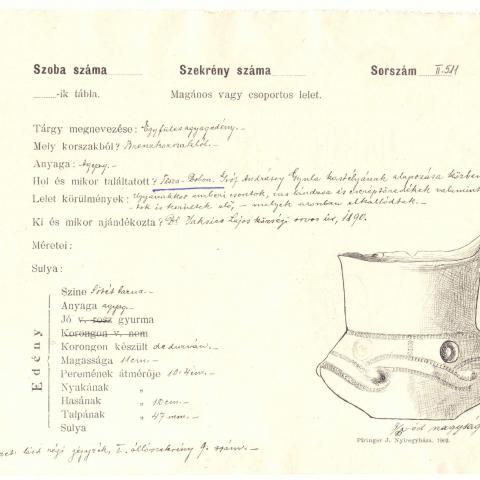 Szoba száma Szekrény száma Sorszám II. 511
-ik tábla. Magános vagy csoportos lelet.
Tárgy megnevezése: Egyfülesagyagedény.-
Mely korszakból? Bronzkorszakból.-
Anyaga: Agyag.-
Hol és mikor találtatott? Tisza-Dobon. Gróf Andrássy Gyula kastélyának alapozása közben
Lelet körülmények: Ugyanakkor emberi csontok, és cseréptöredékek valamint
- melyek azonban elkallódtak.-
Ki és mikor ajándékozta? Dr. Lajos községi orvos úr, 1890.
Méretei:
Sulya:
Edény
Szine Sötét barna.-
Anyaga agyag.-
Jó v. rosz gyurma
Korongon v. nem
Korongon készült de durván.
Magassága 11 cm.-
Peremének átmérője 10.4 cm.-
Nyakának "
Hasának " 12 cm.-
Talpának " 47 mm.-
Sulya
lásd régi jegyzék, I. állószekrény 9. szám.-
nagyság
Píringer J. Nyíregyháza. 1902.